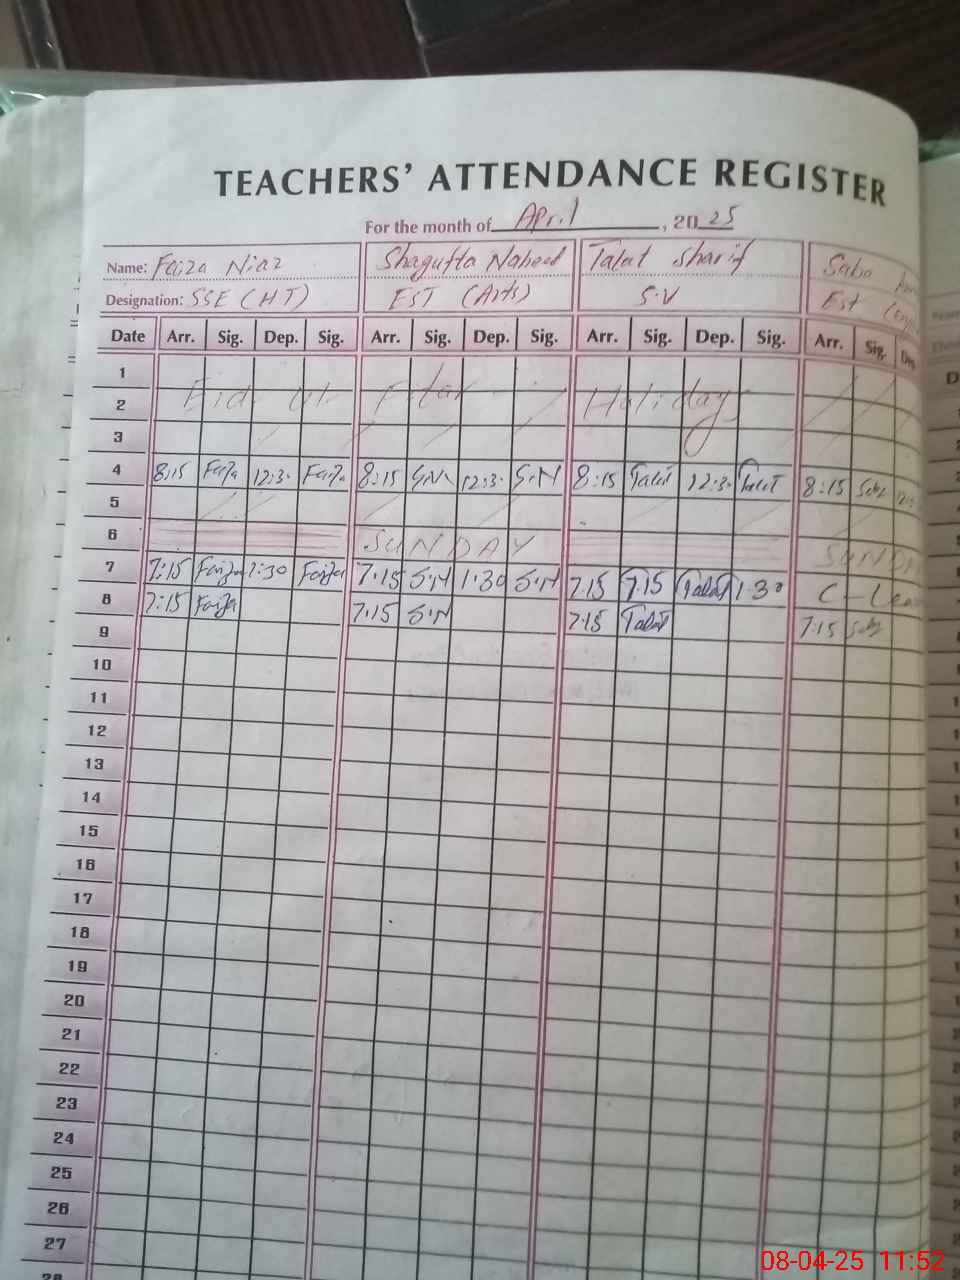 TEACHERS' ATTENDANCE REGISTER
For the month of April, 2025
Name: Faiza Niaz Shagufta Naheed Talat Sharif Saba
Designation: SSE (HT) EST (Arts) S.V Est
Date Arr. Sig. Dep. Sig. Arr. Sig. Dep. Sig. Arr. Sig. Dep. Sig. Arr. Sig.
1
2 Eid ul Fitar Holidays
3
4 8:15 Faiza 12:3. Faiza 8:15 S.N 12:3. S.N 8:15 Talat 12:3. Talat 8:15
5
6 SUNDAY
7 7:15 Faiza 1:30 Faiza 7.15 S.N 1:30 S.N 7.15 7.15 Talat 1.30 C-Lea
8 7:15 Faiza 7.15 S.N 7.15 Talat 7.15
9
10
11
12
13
14
15
16
17
18
19
20
21
22
23
24
25
26
27
28
08-04-25 11:52